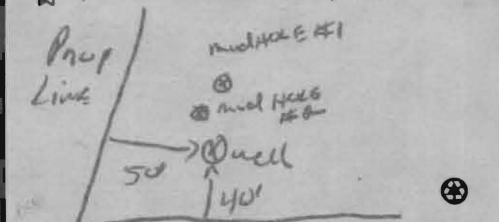 Prop
Line
mud HOLE #1
mud HOLE
#2
well
50'
40'